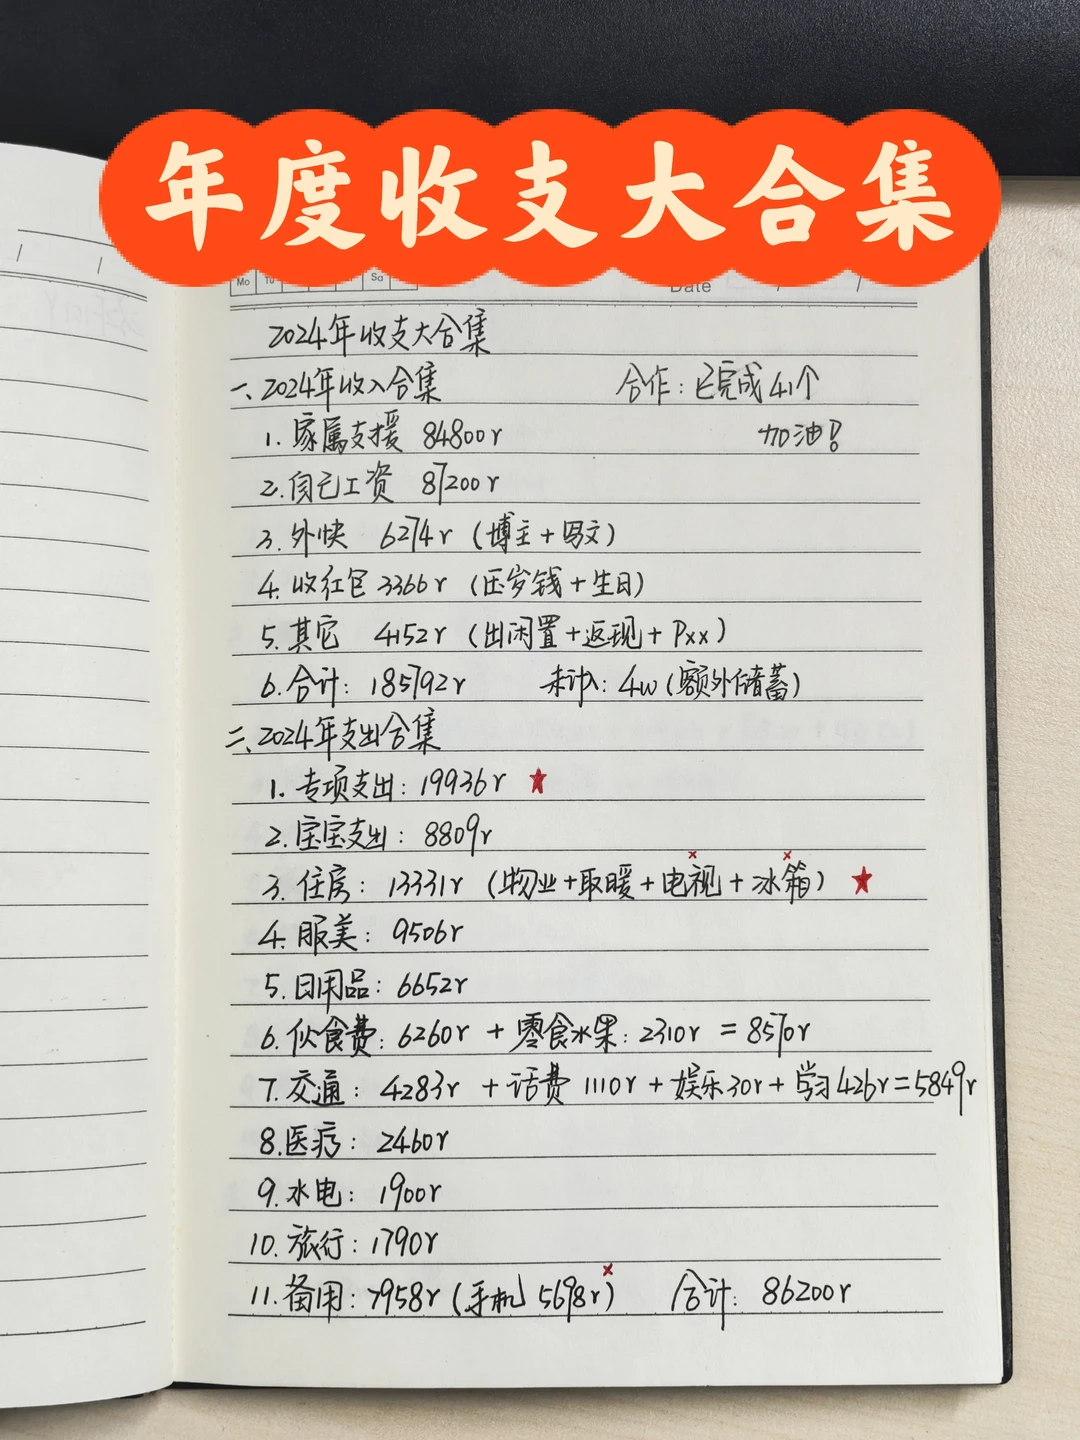 年度收支大合集
Mo Tu Sa
Date
2024年收支大合集
一、2024年收入合集 合作：已完成41个
1. 家属支援 84800r 加油！
2. 自己工资 87200r
3. 外快 6274r（博主+写文）
4. 收红包 3366r（压岁钱+生日）
5. 其它 4152r（出闲置+返现+Pxx）
6. 合计：185792r 未计入：4w（额外储蓄）
二、2024年支出合集
1. 专项支出：19936r ★
2. 宝宝支出：8809r
3. 住房：13331r（物业+取暖+电视+冰箱）★
4. 服美：9506r
5. 日用品：6652r
6. 伙食费：6260r + 零食水果：2310r = 8570r
7. 交通：4283r + 话费 1110r + 娱乐30r + 学习426r = 5849r
8. 医疗：2460r
9. 水电：1900r
10. 旅行：1790r
11. 备用：7958r（手机 5698r） 合计：86200r